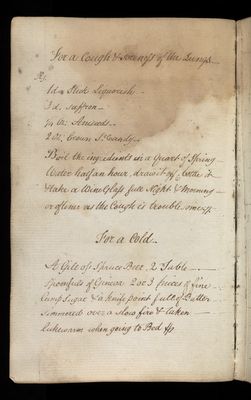 For a Cough & Soreness of the Lungs
1d Stick Liquorish
3d. Saffron
¼ lb: Aniseeds
2 oz: brown S: Candy
Boil the ingredients in a Quart of Spring
Water half an hour, draw it off, bottle it
& take a Wine Glass full Night & Morning
or oftener as the Cough is troublesome
For a Cold
A Gill of Spruce Beer, 2 Table
Spoonfuls of Geneva 2 or 3 pieces of fine
lump Sugar & a knife point full of Butter
simmered over a slow fire & taken
lukewarm when going to Bed